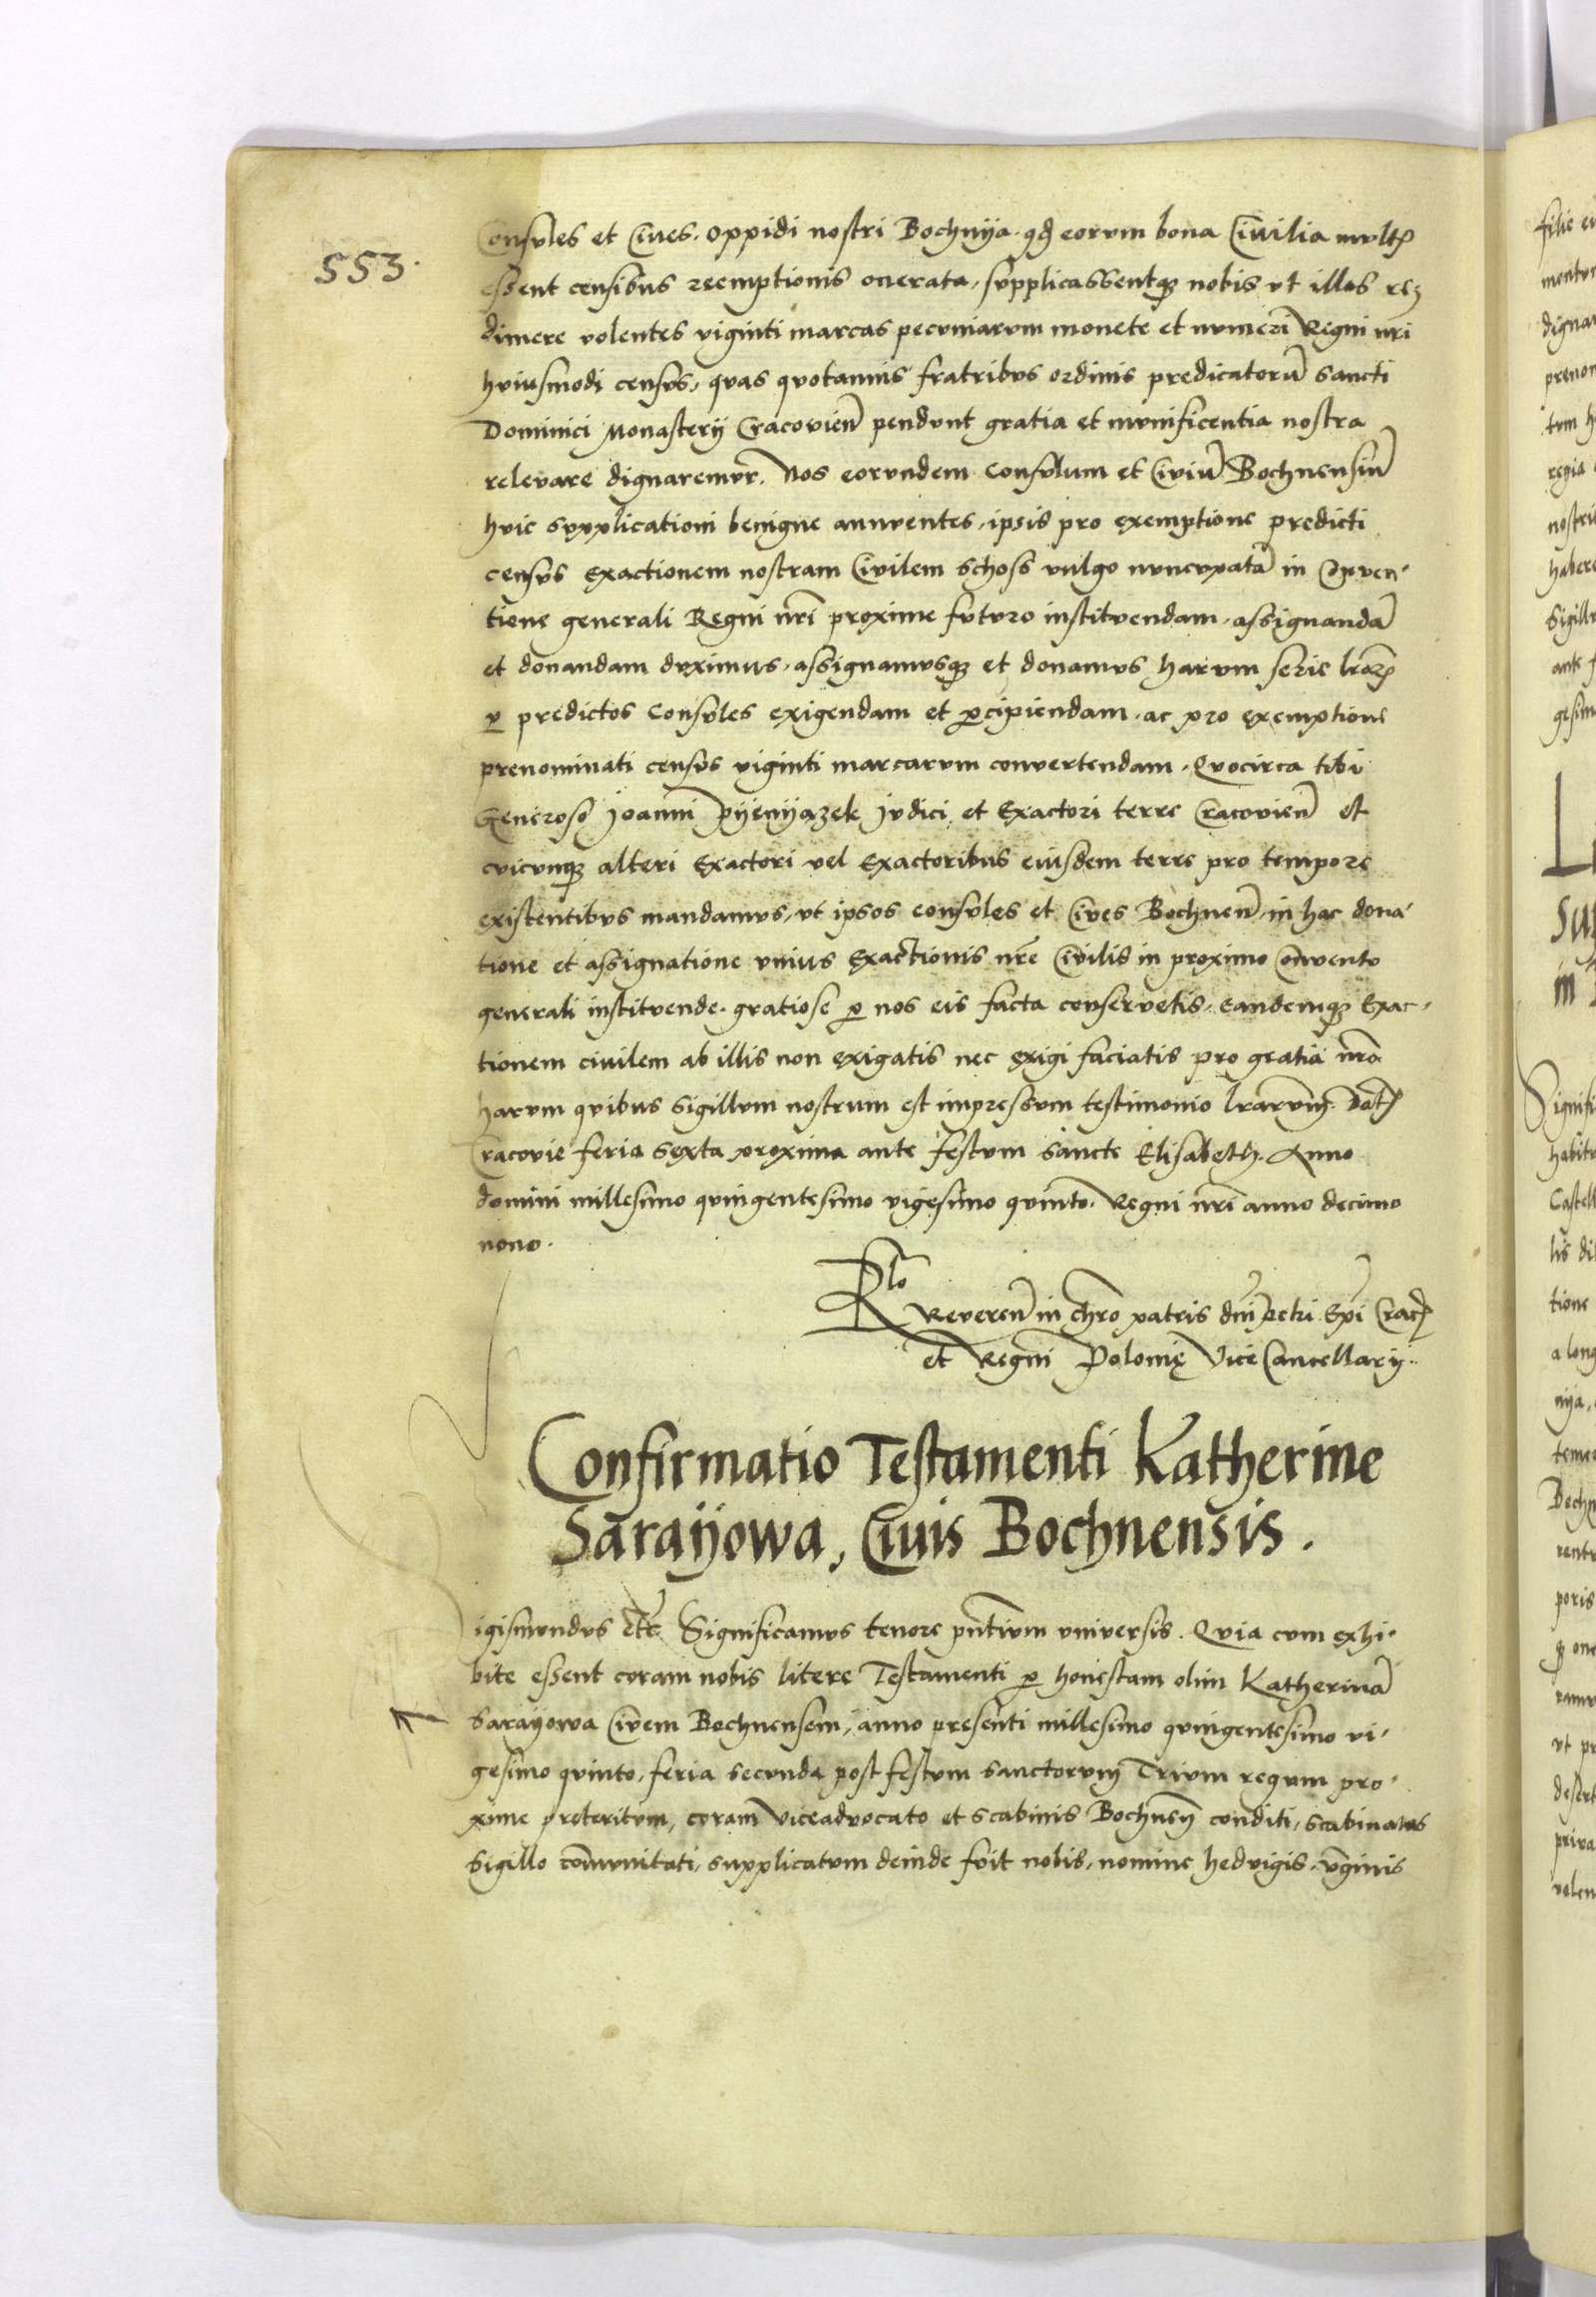 553.
Consules et Cives. oppidi nostri Bochnÿa. qd eorum bona Civilia mult
essent censibus reemptionis onerata, supplicassentqz nobis vt illos re
dimere volentes viginti marcas pecuniarum monete et numeri Regni nri
huiusmodi census, quas quotannis fratribus ordinis predicatorū sancti
Dominici Monasterij Cracovien pendunt gratia et munificentia nostra
relevare dignaremur. Nos eorundem Consulum et Civiū Bochnensiū
huic supplicationi benigne annuentes, ipsis pro exemptione predicti
census exactionem nostram Civilem schoss vulgo nuncupatā in Conven-
tione generali Regni nri proxime futuro instituendam, assignandā
et donandam duximus, assignamusqz et donamus harum serie lrarz
p predictos Consules exigendam et pcipiendam, ac pro exemptione
prenominati census viginti marcarum convertendam. Quocirca tibi
Generoso Joanni Pÿenÿazek Judici et Exactori terre Cracovien et
cuicunqz alteri Exactori vel Exactoribus eiusdem terre pro tempore
existentibus mandamus, vt ipsos consules et Cives Bochnen, in hac dona-
tione et assignatione vnius Exactionis nre Civilis in proximo Conventu
generali instituende. gratiose p nos eis facta conservetis, eandemqz Exac-
tionem civilem ab illis non exigatis nec exigi faciatis pro gratia nra
harum quibus sigillum nostrum est impressum testimonio lrarum. Dat
Cracovie feria sexta proxima ante festum sancte Elisabeth. Anno
domini millesimo quingentesimo vigesimo quinto. Regni nri anno decimo
nono.
Rlo
Reveren in chro patris dni Petri Epi Crac
et Regni Polonię Vice Cancellarij..
Confirmatio Testamenti Katherine
Saraÿowa, Civis Bochnensis.
igismundus etc Significamus tenore pntium vniversis. Quia cum exhi-
bite essent coram nobis litere Testamenti p honestam olim Katherinā
Sarayowa Civem Bochnensem, anno presenti millesimo quingentesimo vi-
gesimo quinto, feria secunda post festum sanctorum Trium regum pro-
xime preteritum, coram Viceadvocato et scabinis Bochnen conditi, scabinatus
Sigillo comunitati, supplicatum deinde fuit nobis, nomine hedvigis, vginis